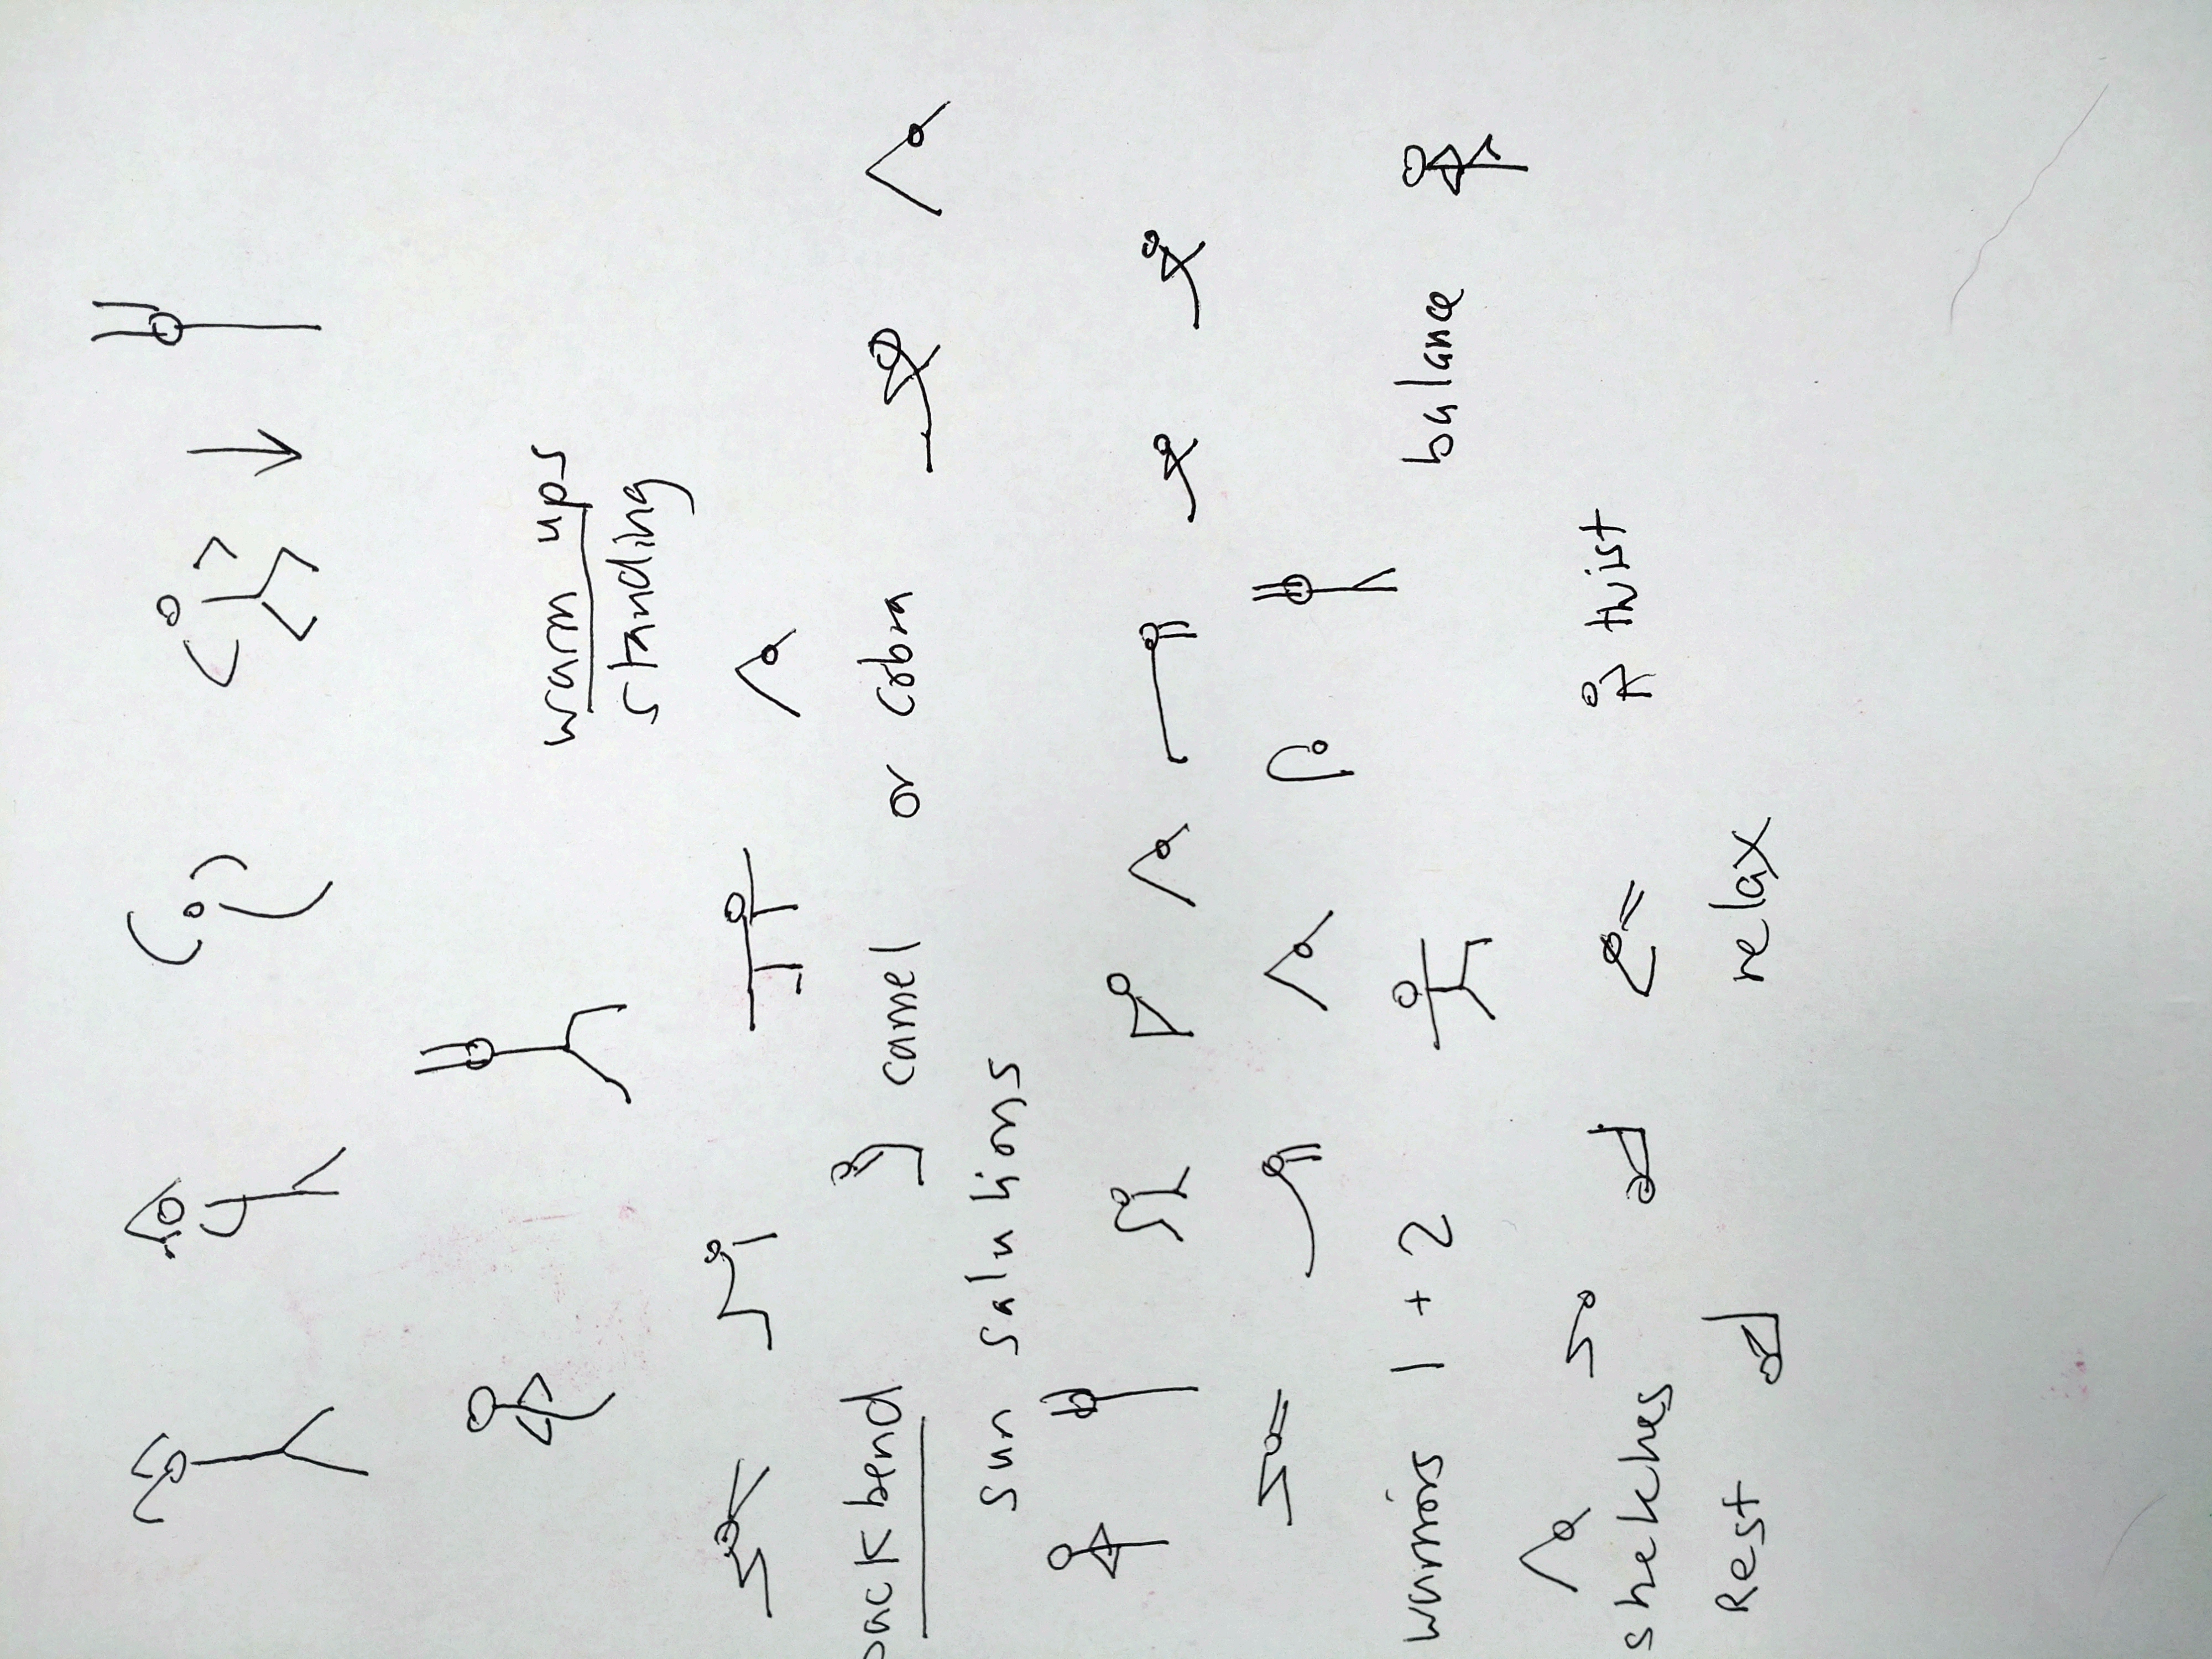 warm ups
standing
back bend camel or cobra
sun salutions
warriors 1 + 2 balance
stretches twist
Rest relax